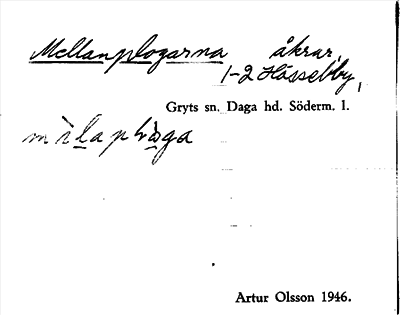 Mellanplogarna åkrar,
1-2 Hässelby,
Gryts sn. Daga hd. Söderm. l.
Artur Olsson 1946.